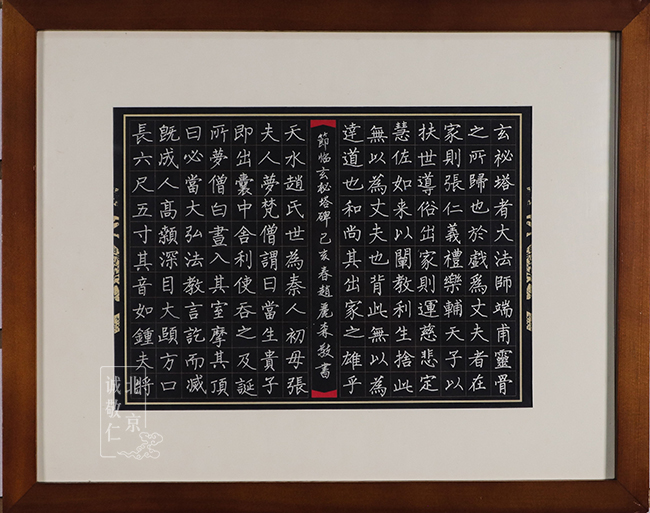 玄祕塔者大法師端甫靈骨
之所歸也於戲為丈夫者在
家則張仁義禮樂輔天子以
扶世導俗出家則運慈悲定
慧佐如来以闡教利生捨此
無以為丈夫也背此無以為
達道也和尚其出家之雄乎
節临玄秘塔碑己亥春趙麗森敬書
天水趙氏世為秦人初母張
夫人夢梵僧謂曰當生貴子
即出囊中舍利使吞之及誕
所夢僧白晝入其室摩其頂
曰必當大弘法教言訖而滅
既成人高顙深目大頤方口
長六尺五寸其音如鍾夫將
北京
诚敬仁